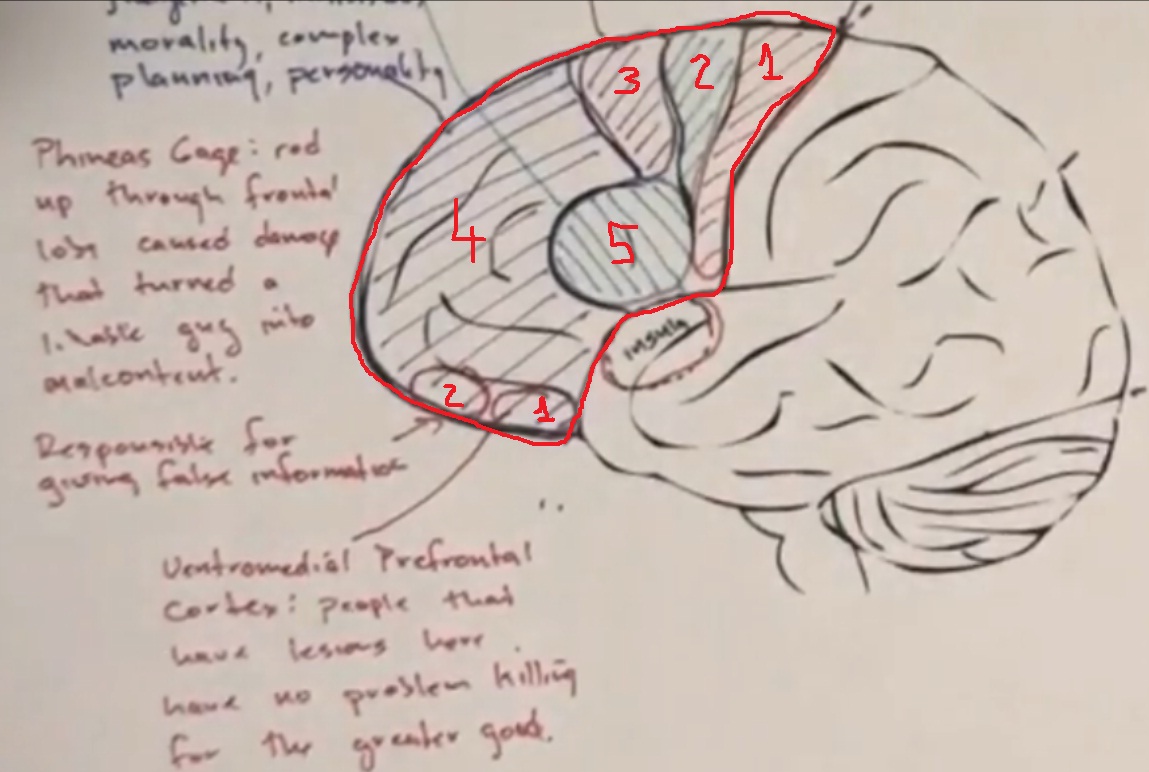 morality, complex
planning, personality
Phineas Gage: rod
up through frontal
lobe caused damage
that turned a
likable guy into
malcontent.
Responsible for
giving false information
Ventromedial Prefrontal
Cortex: people that
have lesions here
have no problem killing
for the greater good.
3 2 1
4 5
insula
2 1